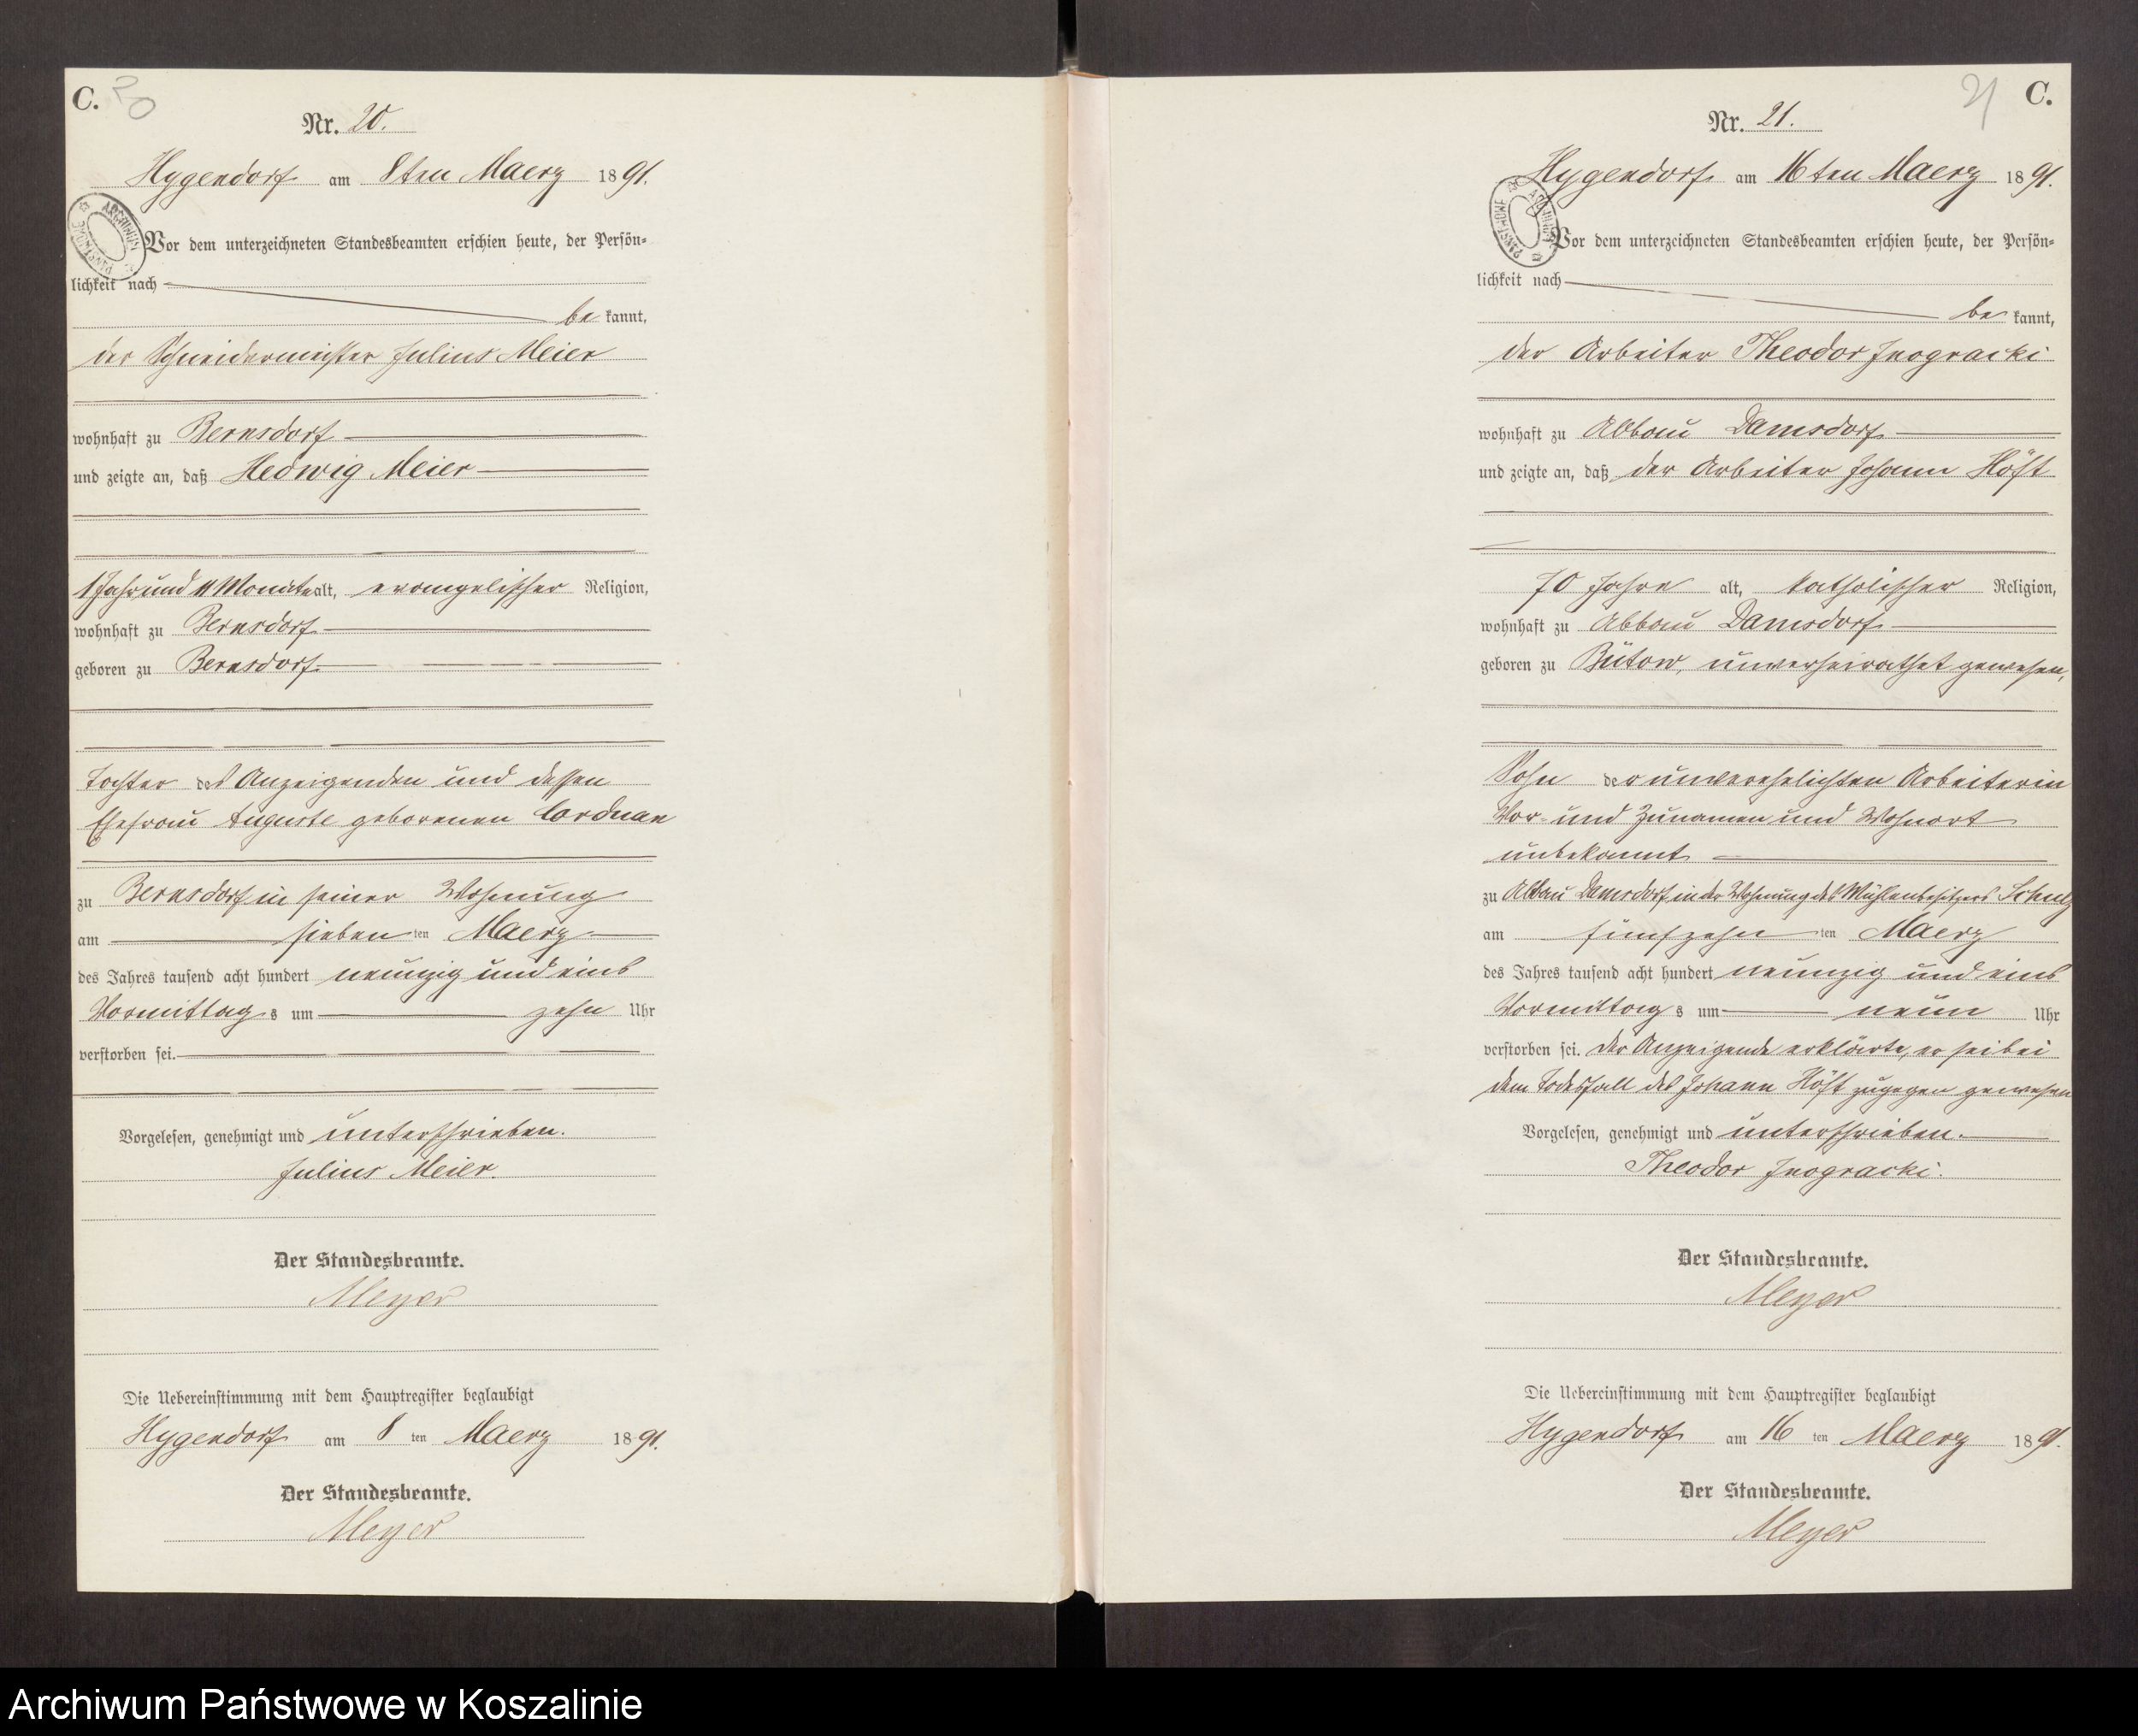 C. 20
Nr. 20.
Hygendorf am 8ten Maerz 1891.
Vor dem unterzeichneten Standesbeamten erschien heute, der Persön=
lichkeit nach
be kannt,
der Schneidermeister Julius Meier
wohnhaft zu Bernsdorf
und zeigte an, daß Hedwig Meier
1 Jahr und 11 Monate alt, evangelischer Religion,
wohnhaft zu Bernsdorf
geboren zu Bernsdorf
Tochter des Anzeigenden und dessen
Ehefrau Auguste geborenen Corduan
zu Bernsdorf in seiner Wohnung
am sieben ten Maerz
des Jahres tausend acht hundert neunzig und eins
Vormittag s um zehn Uhr
verstorben sei.
Vorgelesen, genehmigt und unterschrieben.
Julius Meier.
Der Standesbeamte.
Meyer
Die Uebereinstimmung mit dem Hauptregister beglaubigt
Hygendorf am 8 ten Maerz 1891.
Der Standesbeamte.
Meyer
21 C.
Nr. 21.
Hygendorf am 16ten Maerz 1891.
Vor dem unterzeichneten Standesbeamten erschien heute, der Persön=
lichkeit nach
be kannt,
der Arbeiter Theodor Jnogracki
wohnhaft zu Abbau Damsdorf
und zeigte an, daß der Arbeiter Johann Höft
70 Jahre alt, katholischer Religion,
wohnhaft zu Abbau Damsdorf
geboren zu Bütow, unverheirathet gewesen,
Sohn der unverehelichten Arbeiterin
Vor- und Zunamen und Wohnort
unbekannt
zu Abbau Damsdorf in der Wohnung des Mühlenbesitzers Schulz
am fünfzehn ten Maerz
des Jahres tausend acht hundert neunzig und eins
Vormittag s um neun Uhr
verstorben sei. Der Anzeigende erklärte, er sei bei
dem Todesfall des Johann Höft zugegen gewesen
Vorgelesen, genehmigt und unterschrieben.
Theodor Jnogracki.
Der Standesbeamte.
Meyer
Die Uebereinstimmung mit dem Hauptregister beglaubigt
Hygendorf am 16 ten Maerz 1891.
Der Standesbeamte.
Meyer
Archiwum Państwowe w Koszalinie